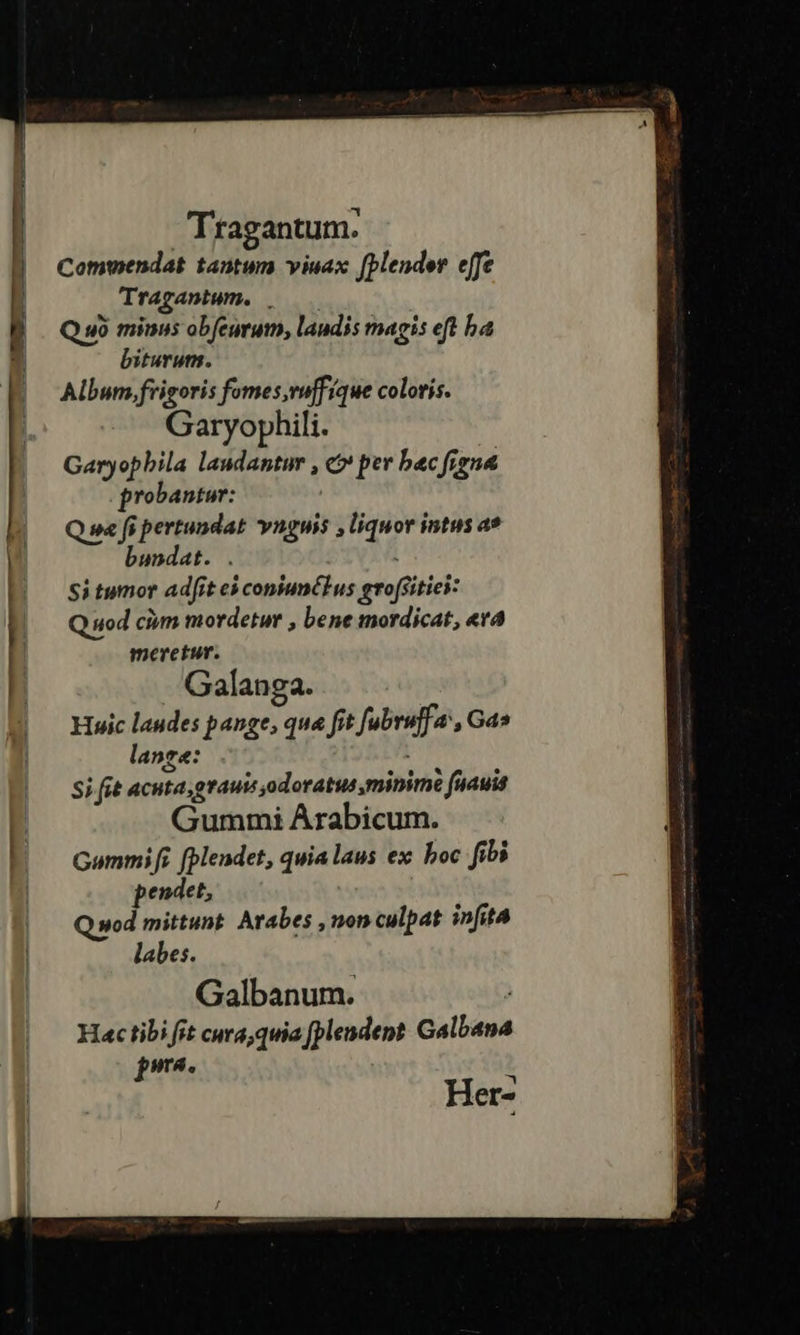 Tragantum.
Commendat tantum viuax ſplendor eſſe
Tragantum.
Quò minus obſcurum, laudis magis eſt ha
biturum.
Album, frigoris fomes, ruffíque coloris.
Garyophili.
Garyophila laudantur, & per hæc ſigna
probantur:
Quæ ſi pertundat vnguis, liquor intus a-
bundat.
Si tumor adſit ei coniunctus groſsitiei:
Quod cùm mordetur, bene mordicat, æra
meretur.
Galanga.
Huic laudes pange, quæ ſit ſubruffa, Ga-
langæ:
Si ſit acuta, grauis, odoratus, minimè ſuauis
Gummi Arabicum.
Gummi ſi ſplendet, quia laus ex hoc ſibi
pendet,
Quod mittunt Arabes, non culpat inſita
labes.
Galbanum.
Hæc tibi ſit cura, quia ſplendent Galbana
pura.
Her-